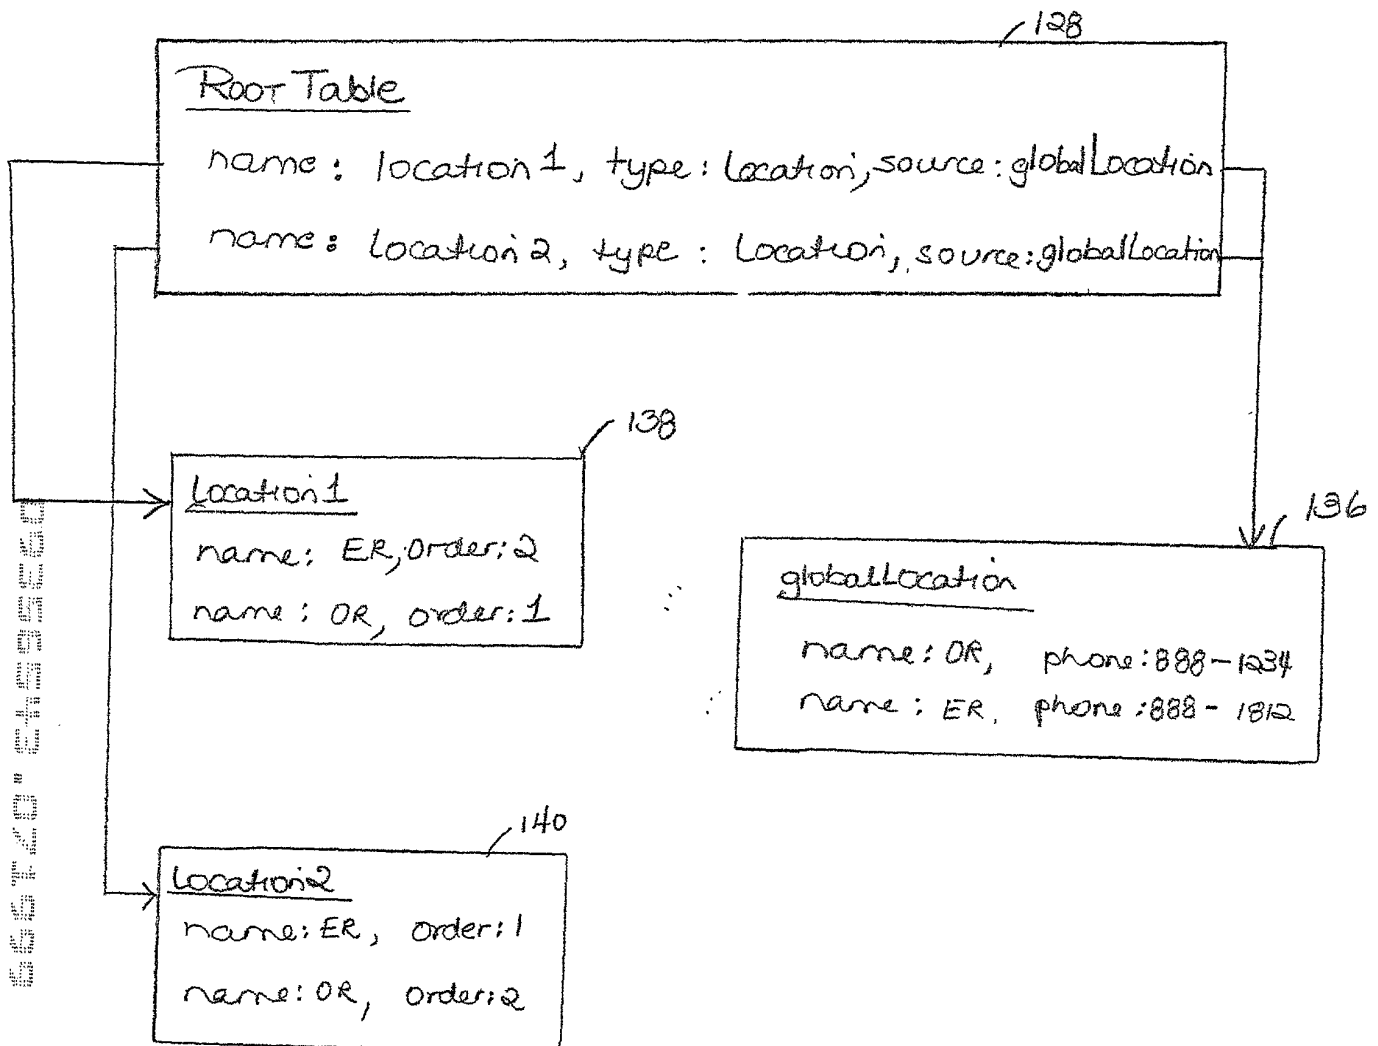 128
Root Table
name: location1, type: Location, source: globalLocation
name: location2, type: Location, source: globalLocation
138
Location1
name: ER, Order: 2
name: OR, order: 1
136
globalLocation
name: OR, phone: 888-1234
name: ER, phone: 888-1812
140
Location2
name: ER, order: 1
name: OR, order: 2